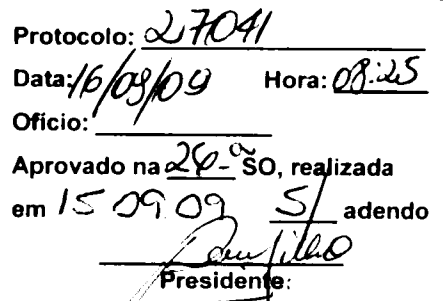 Protocolo: 27041
Data: 16/09/09 Hora: 08:25
Ofício:
Aprovado na 26.ª SO, realizada
em 15 09 09 S/ adendo
Presidente: